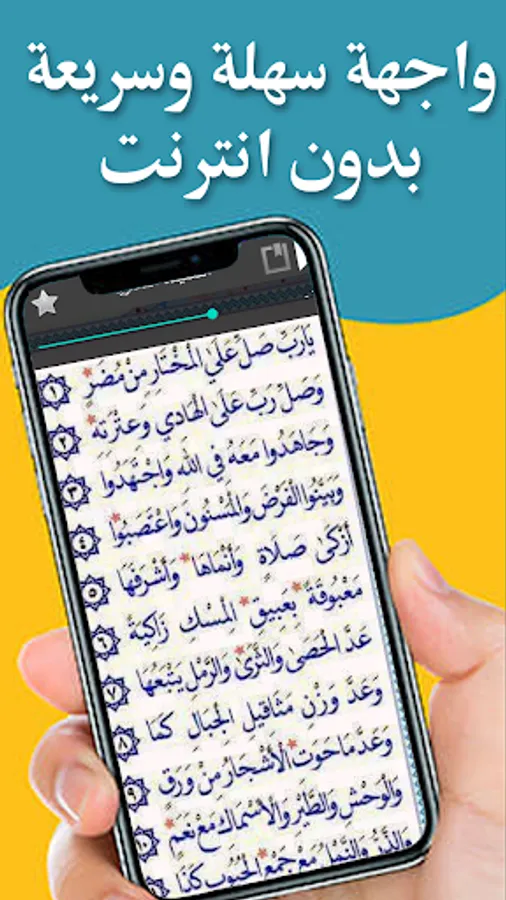 واجهة سهلة وسريعة
بدون انترنت
يَارَبِّ صَلِّ عَلَىٰ الْمُخْتَارِ مِنْ مُضَرٍ ١
وَصَلِّ رَبِّ عَلَى الْهَادِي وَعِتْرَتِهِ ٢
وَجَاهَدُوا مَعَهُ فِي اللهِ وَاجْتَهَدُوا ٣
وَبَيَّنُوا الْفَرْضَ وَالْمَسْنُونَ وَاعْتَصَبُوا ٤
أَزْكَىٰ صَلَاةٍ وَأَنْمَاهَا وَأَشْرَفَهَا ٥
مَعْبُوقَةً بِعَبِيقِ الْمِسْكِ زَاكِيَةً ٦
عَدَّ الْحَصَىٰ وَالثَّرَىٰ وَالرَّمْلِ يَتْبَعُهَا ٧
وَعَدَّ وَزْنِ مَثَاقِيلِ الْجِبَالِ كَمَا ٨
وَعَدَّ مَا حَوَتِ الْأَشْجَارُ مِنْ وَرَقٍ ٩
وَالْوَحْشِ وَالطَّيْرِ وَالْأَسْمَاكِ مَعْ نَعَمٍ ١٠
وَالذَّرُّ وَالنَّمْلُ مَعْ جَمْعِ الْحُبُوبِ كَذَا